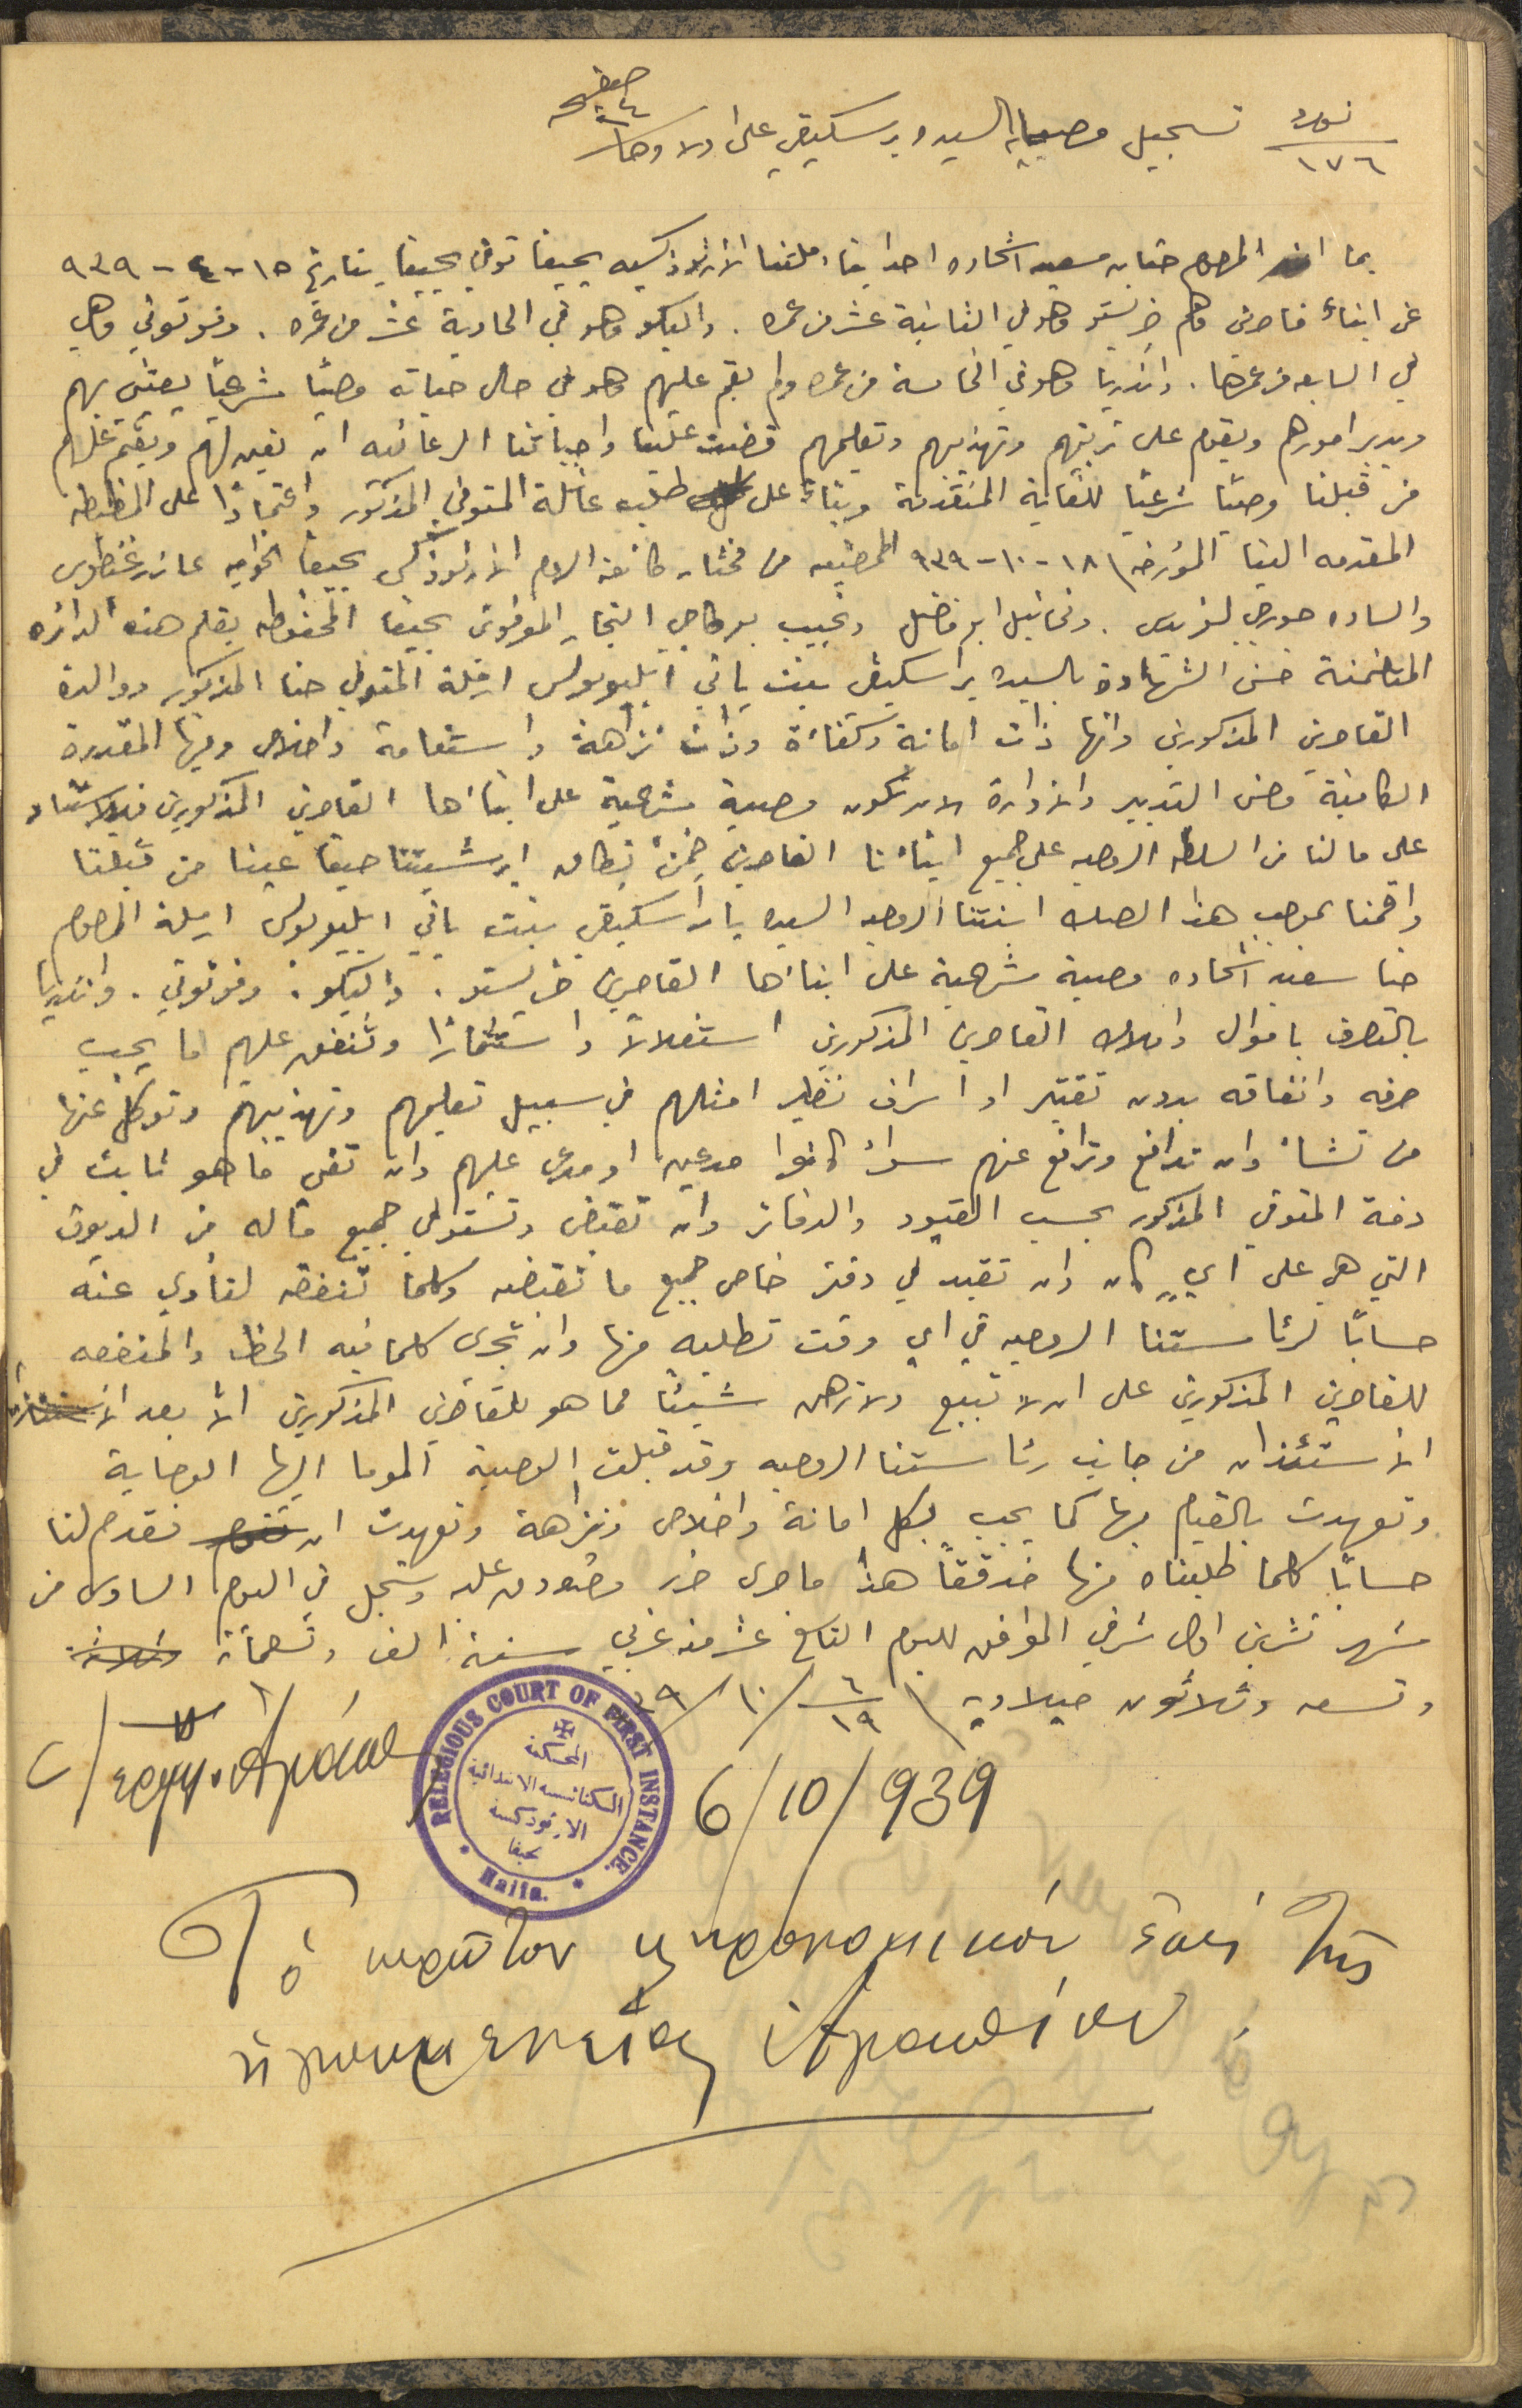 صفحة ٢٤
نمره ١٧٦ تسجيل وصاية السيده برسكيفي على اولادها
بما ان المرحوم حنا بن سعيد شحاده احد ابناء ملتنا الارثوذكسيه بحيفا توفي بحيفا بتاريخ ١٥-٤-٩٣٩
عن ابناء قاصرين وهم خريستو وهو في الثانية عشر من عمره . واليكو وهو في الحادية عشر من عمره . وفوتوني وهي
في السابعه من عمرها . واندريا وهو في الخامسة من عمره ولم يقم عليهم وهو في حال حياته وصيًا شرعيًا يعتني بهم
ويدير امورهم ويقوم على تربيتهم وتهذيبهم وتعليمهم قضت علينا واجباتنا الرعائيه ان نعين لهم ونقيم عليهم
من قبلنا وصيًا شرعيًا للغاية المتقدمة وبناءً على طلب عائلة المتوفي المذكور واعتمادًا على المضبطه
المقدمه الينا المؤرخه ١٨-١٠-٩٣٩ الممضيه من مختار طائفة الروم الارثوذكس بحيفا الخواجه
والساده جورجي . ونخائيل ابو فاضل ونجيب النجار الموقوتين بحيفا المحفوظه بقلم هذه الدائره
المتضمنة حسن الشهادة بالسيده براسكيفي بنت ياني ايليوبولس ارملة المتوفي حنا المذكور ووالدة
القاصرين المذكورين وانها ذات امانة وكفاءة وذات نزاهة واستقامة واخلاص وفيها المقدرة
الكافية وحسن التدبير والادارة لان تكون وصية شرعية على ابناءها القاصرين المذكورين فبالاستناد
على ما لنا من السلطه الروحيه على جميع ابنائنا القاصرين ضمن نطاق ابرشيتنا حيفا عينا من قبلنا
واقمنا بموجب هذا الصك ابنتنا الروحيه السيده باراسكيفي بنت ياني ايليوبولس ارملة المرحوم
حنا سعيد شحاده وصية شرعية على ابناءها القاصرين خريستو . واليكو . وفوتوني . واندريا
بالتصرف باموال واملاك القاصرين المذكورين استغلالًا واستثمارًا وتنفق عليهم ما يجب
صرفه وانفاقه بدون تقتير او اسراف نظير امثلهم في سبيل تعليمهم وتهذيبهم وتوكل عنها
من تشاء وان تدافع وترافع عنهم سواء كانوا مدعين او مدعى عليهم وان تفي ما هو ثابت في
ذمة المتوفي المذكور بحسب القيود والدفاتر وان تقبض وتستولي جميع ماله من الديون
التي هي على اي كان وان تقيد في دفتر خاص جميع ما تقبضه وكلما تنفقه لتأدي عنه
حسابًا لرئاستنا الروحيه في اي وقت تطلبه منها وان تجري كلما فيه الحظ والمنفعه
للقاصرين المذكورين على ان لا تبيع ولا ترهن شيئًا مما هو للقاصرين المذكورين الا بعد
الاستئذان من جانب رئاستنا الروحيه وقد قبلت الوصية الموما اليها الوصاية
وتعهدت بالقيام بها كما يجب بكل امانة واخلاص ونزاهة وتعهدت ان تقدم لنا
حسابًا كلما طلبناه منها مدققًا هذا ما جرى حرر وسجل في اليوم السادس من
شهر تشرين اول شرقي الموافق لليوم التاسع عشر منه غربي سنة الف وتسعماية
وتسعه وثلاثون ميلاديه ٦/١٩ /١٠ /٣٩
RELEGIOUS COURT OF FIRST INSTANCE.
Haifa.
المحكمة
الكنائسية الابتدائية
الارثوذكسية
بحيفا
6/10/939